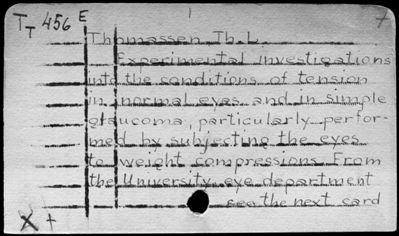 TT 456 E
Thomassen Th. L.
Experimental investigations
into the conditions of tension
in normal eyes and in simple
glaucoma, particularly perfor-
med by subjecting the eyes
to weight compressions. From
the University eye department
see the next card
X +